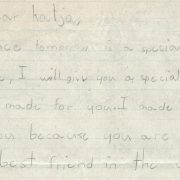 ear
nce tomorrow is a special
e, I will give you a special
made for you. I made
ou because you are
best friend in the w